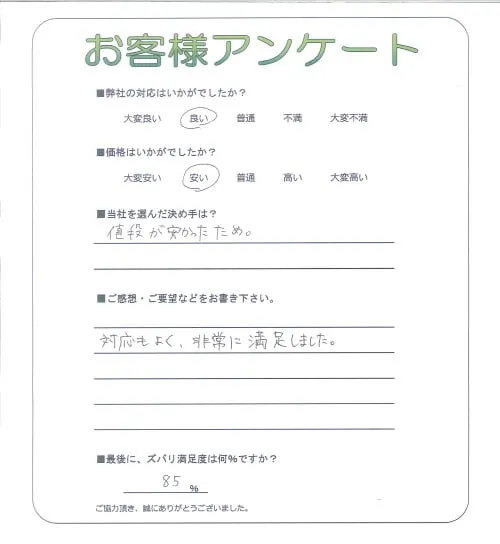 お客様アンケート
■弊社の対応はいかがでしたか？
大変良い 良い 普通 不満 大変不満
■価格はいかがでしたか？
大変安い 安い 普通 高い 大変高い
■当社を選んだ決め手は？
値段が安かったため。
■ご感想・ご要望などをお書き下さい。
対応もよく、非常に満足しました。
■最後に、ズバリ満足度は何%ですか？
85 %
ご協力頂き、誠にありがとうございました。